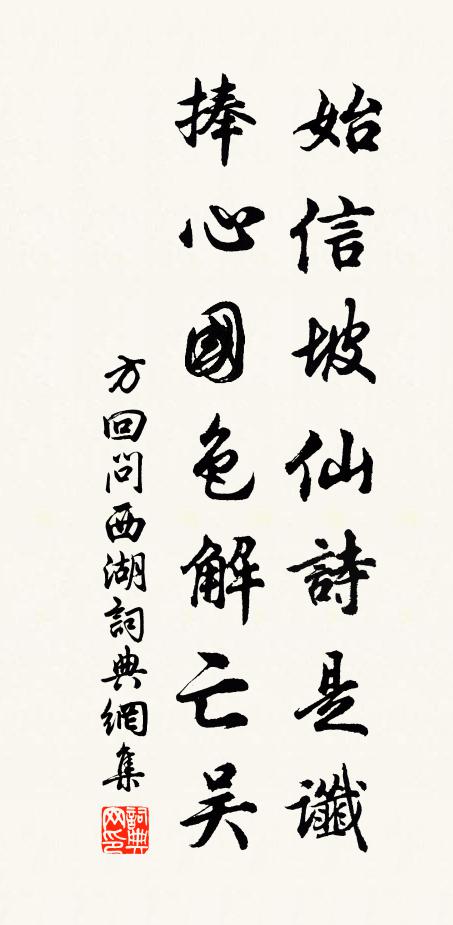 始信坡仙詩是讖
捧心國色解亡吴
方回問西湖詞典網集
詞典網印